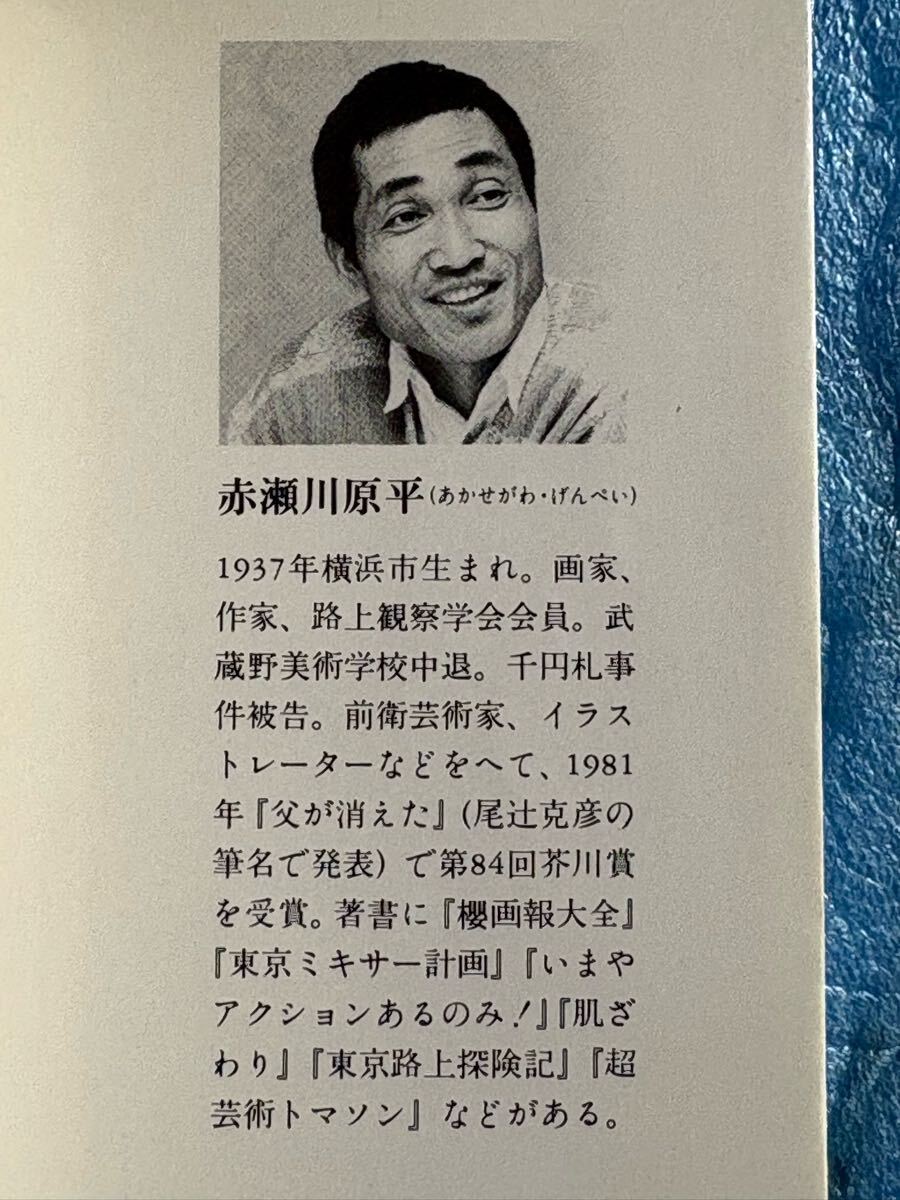 赤瀬川原平(あかせがわ・げんぺい)
1937年横浜市生まれ。画家、
作家、路上観察学会会員。武
蔵野美術学校中退。千円札事
件被告。前衛芸術家、イラス
トレーターなどをへて、1981
年『父が消えた』(尾辻克彦の
筆名で発表)で第84回芥川賞
を受賞。著書に『櫻画報大全』
『東京ミキサー計画』『いまや
アクションあるのみ!』『肌ざ
わり』『東京路上探険記』『超
芸術トマソン』などがある。